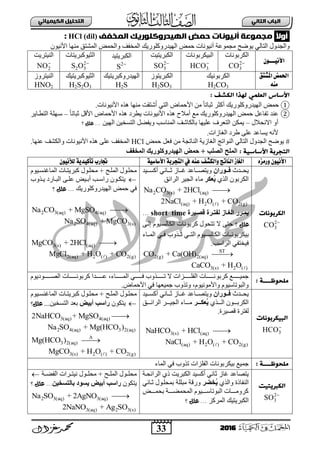 الباب الثاني
التحليل الكيميائي
أولاً مجموعة أنيونات حمض الهيدروكلوريك المخفف HCl (dil) :
والجدول التالي يوضح مجموعة أنيونات حمض الهيدروكلوريك المخفف والحمض المشتق منها الأنيون
الأنيـــون الكربونات البيكربونات الكبريتيت الكبريتيد الثيوكبريتات النيتريت
CO₃²⁻ HCO₃⁻ SO₃²⁻ S²⁻ S₂O₃²⁻ NO₂⁻
الحمض المشتق منه الكربونيك الكبريتوز الهيدروكبريتيك الثيوكبريتيك النيتروز
H2CO3 H2SO3 H2S H2S2O3 HNO2
الأساس العلمي لهذا الكشف :
① حمض الهيدروكلوريك أكثر ثباتاً من الأحماض التي أشتقت منها هذه الأنيونات.
② عند تفاعل حمض الهيدروكلوريك مع أملاح هذه الأنيونات يطرد هذه الأحماض الأقل ثباتاً – سهلة التطاير
أو الانحلال – يمكن التعرف عليها بالكاشف المناسب ويفضل التسخين الهين ... علل ؟
لأنه يساعد علي طرد الغازات.
يوضح الجدول التالي النواتج الغازية الناتجة من فعل حمض HCl المخفف علي هذه الأنيونات والكشف عنها.
التجربة الأساسية : الملح الصلب + حمض الهيدروكلوريك المخفف
الأنيون ورمزه
الغاز الناتج والكشف عنه في التجربة الأساسية
تجارب تأكيدية للأنيون
الكربونات
CO₃²⁻
يحـدث فـوران ويتصـاعد غـاز ثـاني أكسـيد
الكربون الذي يُعكر ماء الجير الرائق
Na2CO3 + 2HCl(aq) ⟶
2NaCl(aq) + H2O(l) + CO2(g)
يمـرر الغـاز لفتـرة قصيـرة short time ...
علل ؟ حتى لا تتحول كربونات الكالسيوم إلى
بيكربونـات الكالسـيوم التـي تـذوب فـي المـاء
فيختفي الراسب.
CO2(g) + Ca(OH)2(aq) ⟶ ST
CaCO3(s) + H2O(l)
محلـول الملـح + محلـول كبريتـات الماغنسـيوم
يتكـون راسـب أبيض علـى البـارد يـذوب
في حمض الهيدروكلوريك ... علل ؟
Na2CO3(aq) + MgSO4(aq) ⟶
Na2SO4(aq) + MgCO3(s)
MgCO3(s) + 2HCl(aq) ⟶
MgCl2(aq) + H2O(l) + CO2(g)
ملحوظـــة : جميع كربونات الفلزات لا تذوب في الماء، عدا كربونات الصوديوم
والبوتاسيوم والأمونيوم، وتذوب جميعها في الأحماض.
البيكربونات
HCO₃⁻
يحـدث فـوران ويتصـاعد غـاز ثـاني أكسـيد
الكربـون الـذي يُعكـر مـاء الجيـر الرائـق
لفترة قصيرة.
NaHCO3(s) + HCl(aq) ⟶
NaCl(aq) + H2O(l) + CO2(g)
محلـول الملـح + محلـول كبريتـات الماغنسـيوم
يتكون راسب أبيض بعد التسخين... علل؟
2NaHCO3(aq) + MgSO4(aq) ⟶
Na2SO4(aq) + Mg(HCO3)2(aq)
Mg(HCO3)2(aq) ⟶ Δ
MgCO3(s) + H2O(l) + CO2(g)
ملحوظـــة : جميع بيكربونات الفلزات تذوب في الماء
الكبريتيت
SO₃²⁻
يتصاعد غاز ثاني أكسيد الكبريت ذي الرائحة
النفاذة والذي يُخضر ورقة مبللة بمحلول ثاني
كرومـات البوتاسـيوم المحمضـة بحمـض
الكبريتيك المركز ... علل ؟
محلـول الملـح + محلـول نيتـرات الفضـة
يتكون راسب أبيض يسود بالتسخين... علل ؟
Na2SO3(aq) + 2AgNO3(aq) ⟶
2NaNO3(aq) + Ag2SO3(s)
33
2016